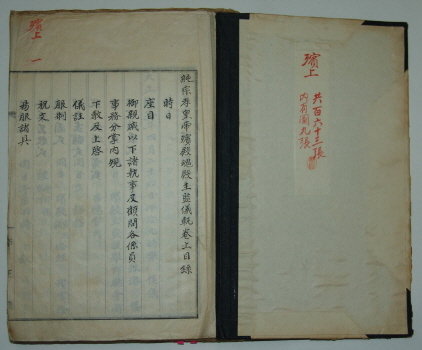 殯上
共百六十三張
內有圖九張
純宗孝皇帝殯殿魂殿主監儀軌卷上目錄
時日
座目
御親戚以下諸執事及顧問各係員
事務分掌內規
下敎及上
儀註
服制
祝文
服諸具
殯上
一